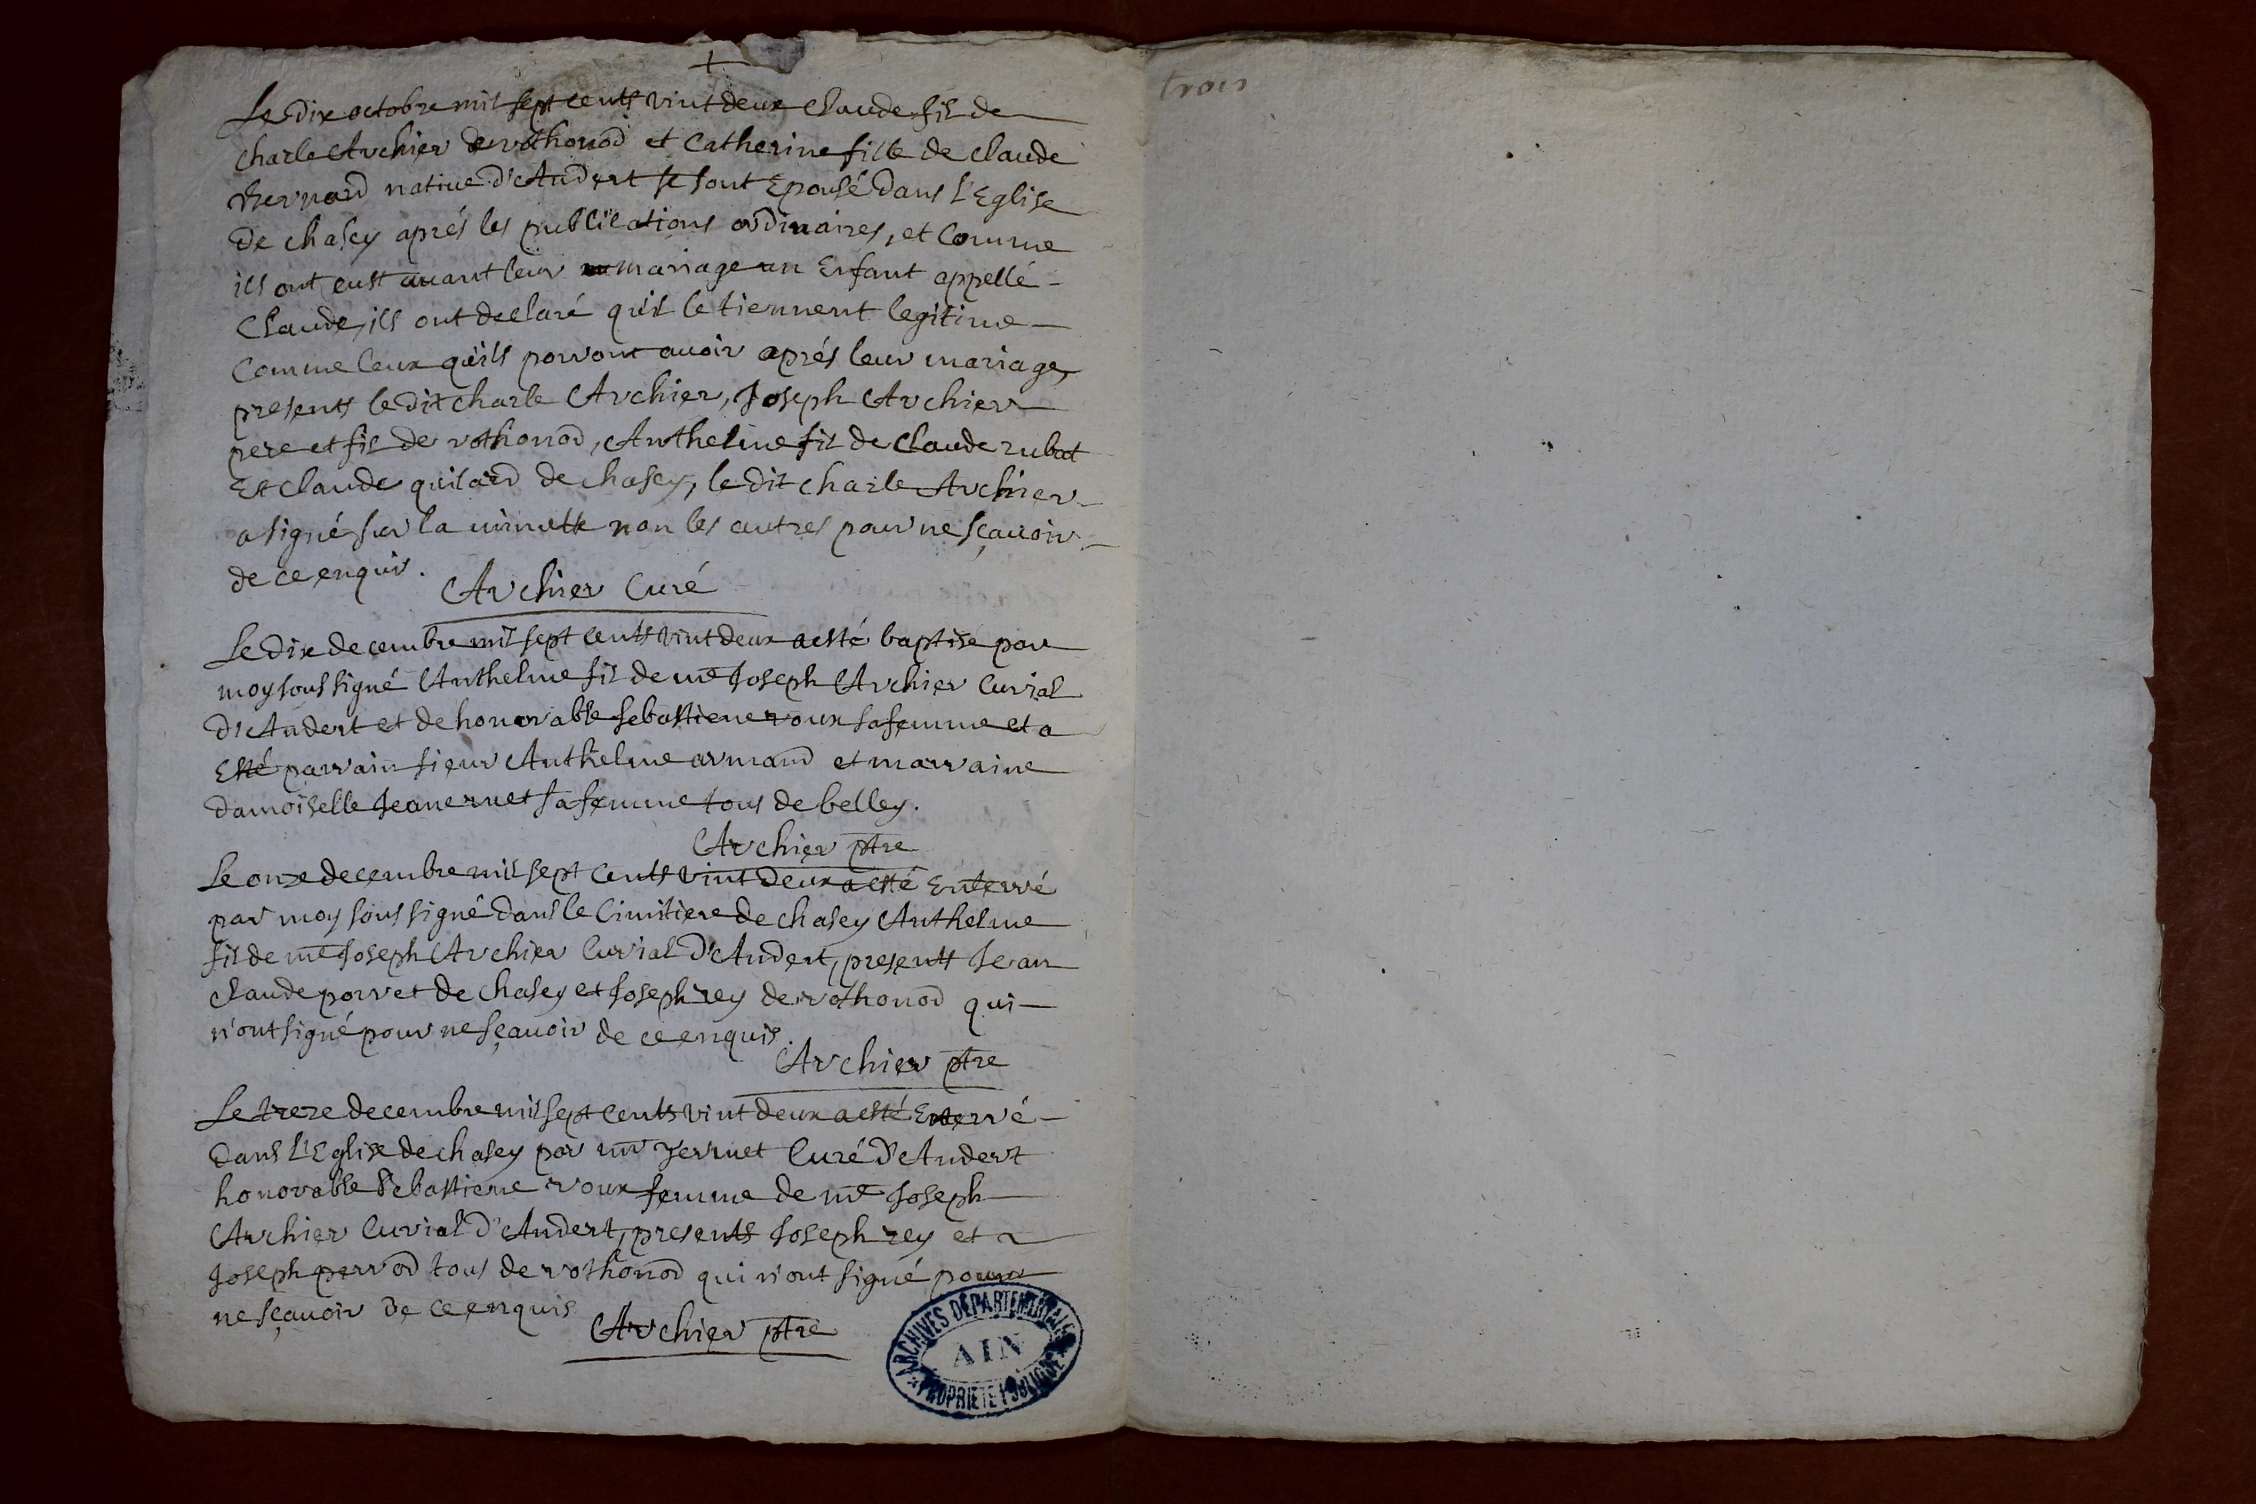 Le dix octobre mil sept cents vint deux Claude fils de
Charle Archier de rothonod et Catherine fille de Claude
Bernard native d'Andert se sont Epousé dans l'Eglise
de chasey aprés les publications ordinaires, et Comme
ils ont eust avant leur mariage un Enfant appellé
Claude, ils ont declaré qu'il le tiennent legitime
Comme ceux qu'ils porront avoir aprés leur mariage,
presents le dit charle Archier, Joseph Archier
pere et fils de rothonod, Anthelme fils de Claude rubat
Et Claude quilard de chasey, le dit charle Archier
a signé sur la minutte non les autres pour ne sçavoir
de ce enquis.
Archier Curé
Le dix decembre mil sept cents vint deux a esté baptise par
moy sous signé Anthelme fils de me Joseph Archier Curial
d'Andert et de honorable sebastiene roux sa femme et a
Esté parrain sieur Anthelme armand et marraine
damoiselle Jeane ruet sa femme tous de belley.
Archier ptre
Le onze decembre mil sept cents vint deux a esté Enterré
par moy sous signé dans le Cimitiere de chasey Anthelme
fils de me Joseph Archier Curial d'Andert, presents Jean
Claude porret de chasey et Joseph rey de rothonod qui
n'ont signé pour ne sçavoir de ce enquis.
Archier ptre
Le treze decembre mil sept cents vint deux a esté Enterré
dans l'Eglise de chasey par mr Curé d'Andert
honorable Sebastiene roux femme de me Joseph
Archier Curial d'Andert, presents Joseph rey et
Joseph perrod tous de rothonod qui n'ont signé pour
ne sçavoir de ce enquis
Archier ptre
ARCHIVES DÉPARTEMENTALES
AIN
PROPRIÉTÉ PUBLIQUE
trois